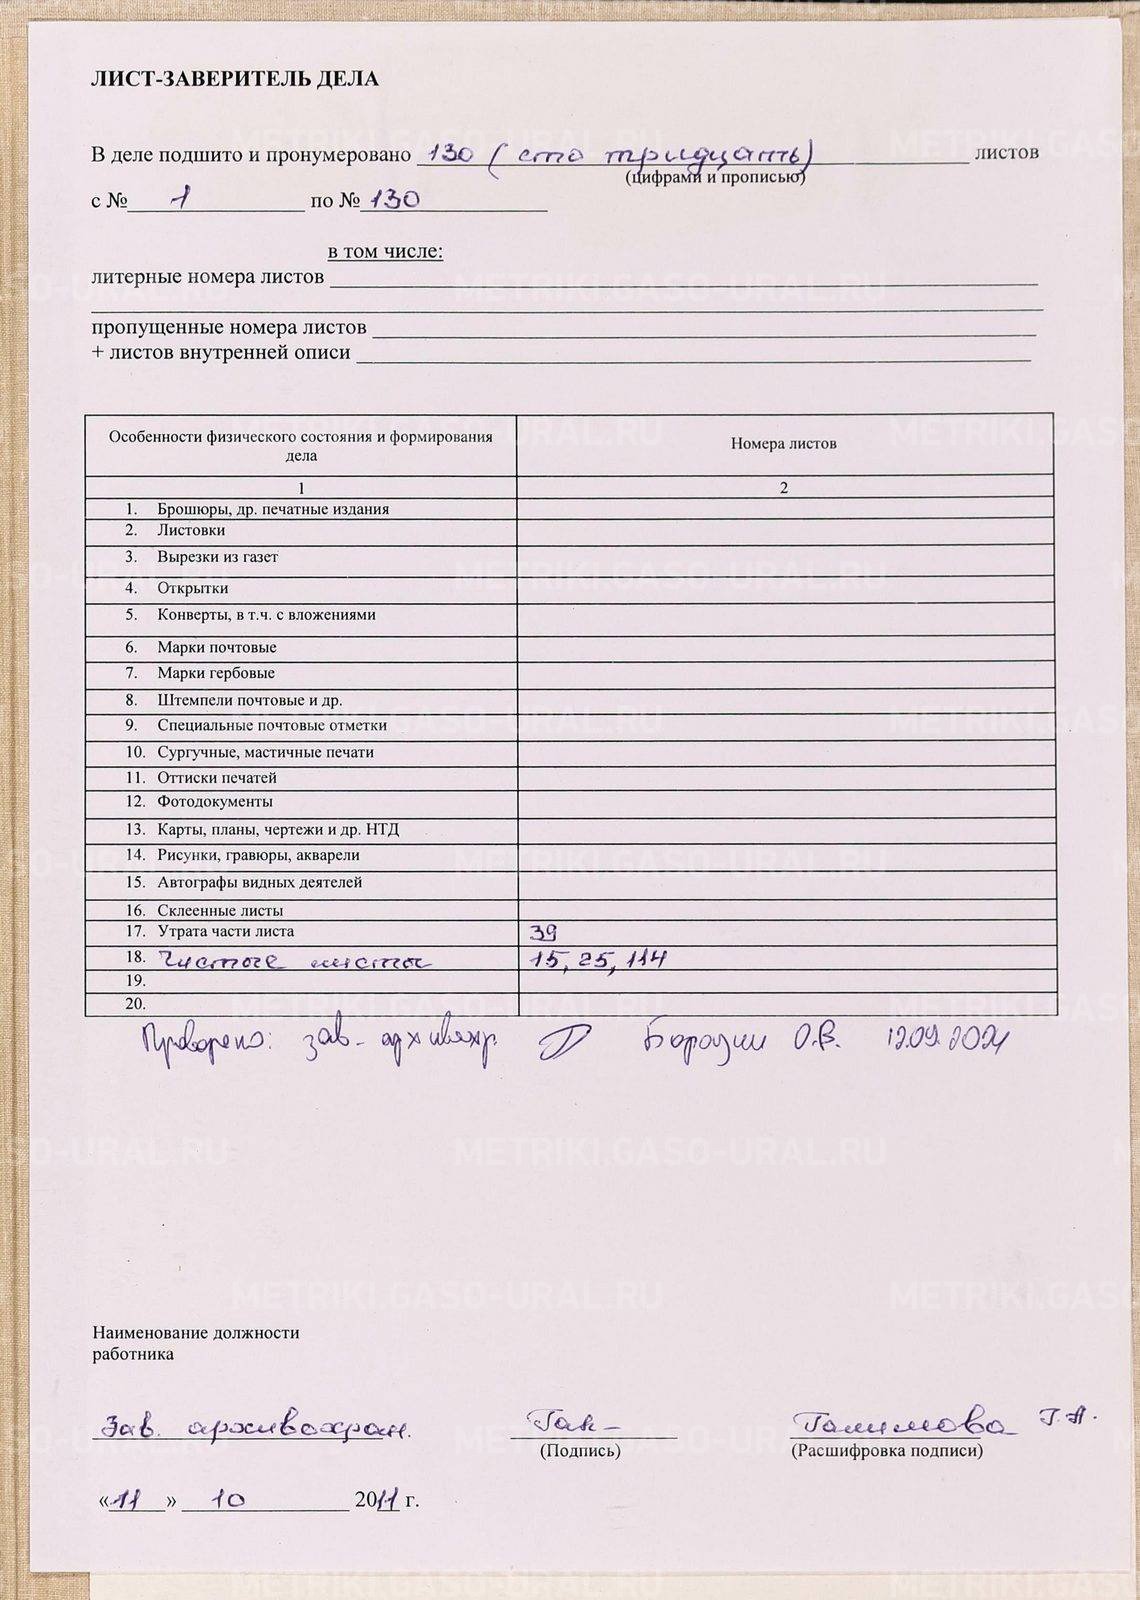 ЛИСТ-ЗАВЕРИТЕЛЬ ДЕЛА
В деле подшито и пронумеровано 130 (сто тридцать) листов
(цифрами и прописью)
с № 1 по № 130
в том числе:
литерные номера листов
пропущенные номера листов
+ листов внутренней описи
Особенности физического состояния и формирования дела Номера листов
1 2
1. Брошюры, др. печатные издания
2. Листовки
3. Вырезки из газет
4. Открытки
5. Конверты, в т.ч. с вложениями
6. Марки почтовые
7. Марки гербовые
8. Штемпели почтовые и др.
9. Специальные почтовые отметки
10. Сургучные, мастичные печати
11. Оттиски печатей
12. Фотодокументы
13. Карты, планы, чертежи и др. НТД
14. Рисунки, гравюры, акварели
15. Автографы видных деятелей
16. Склеенные листы
17. Утрата части листа 39
18. Чистые листы 15, 25, 114
19.
20.
Проверено: зав. архивохр. О.В. 12.09.2021
Наименование должности
работника
Зав. архивохран. Гал- Галимова Г.А.
(Подпись) (Расшифровка подписи)
«11» 10 2011 г.
METRIKI.GASO-URAL.RU